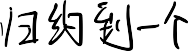 归约到一个